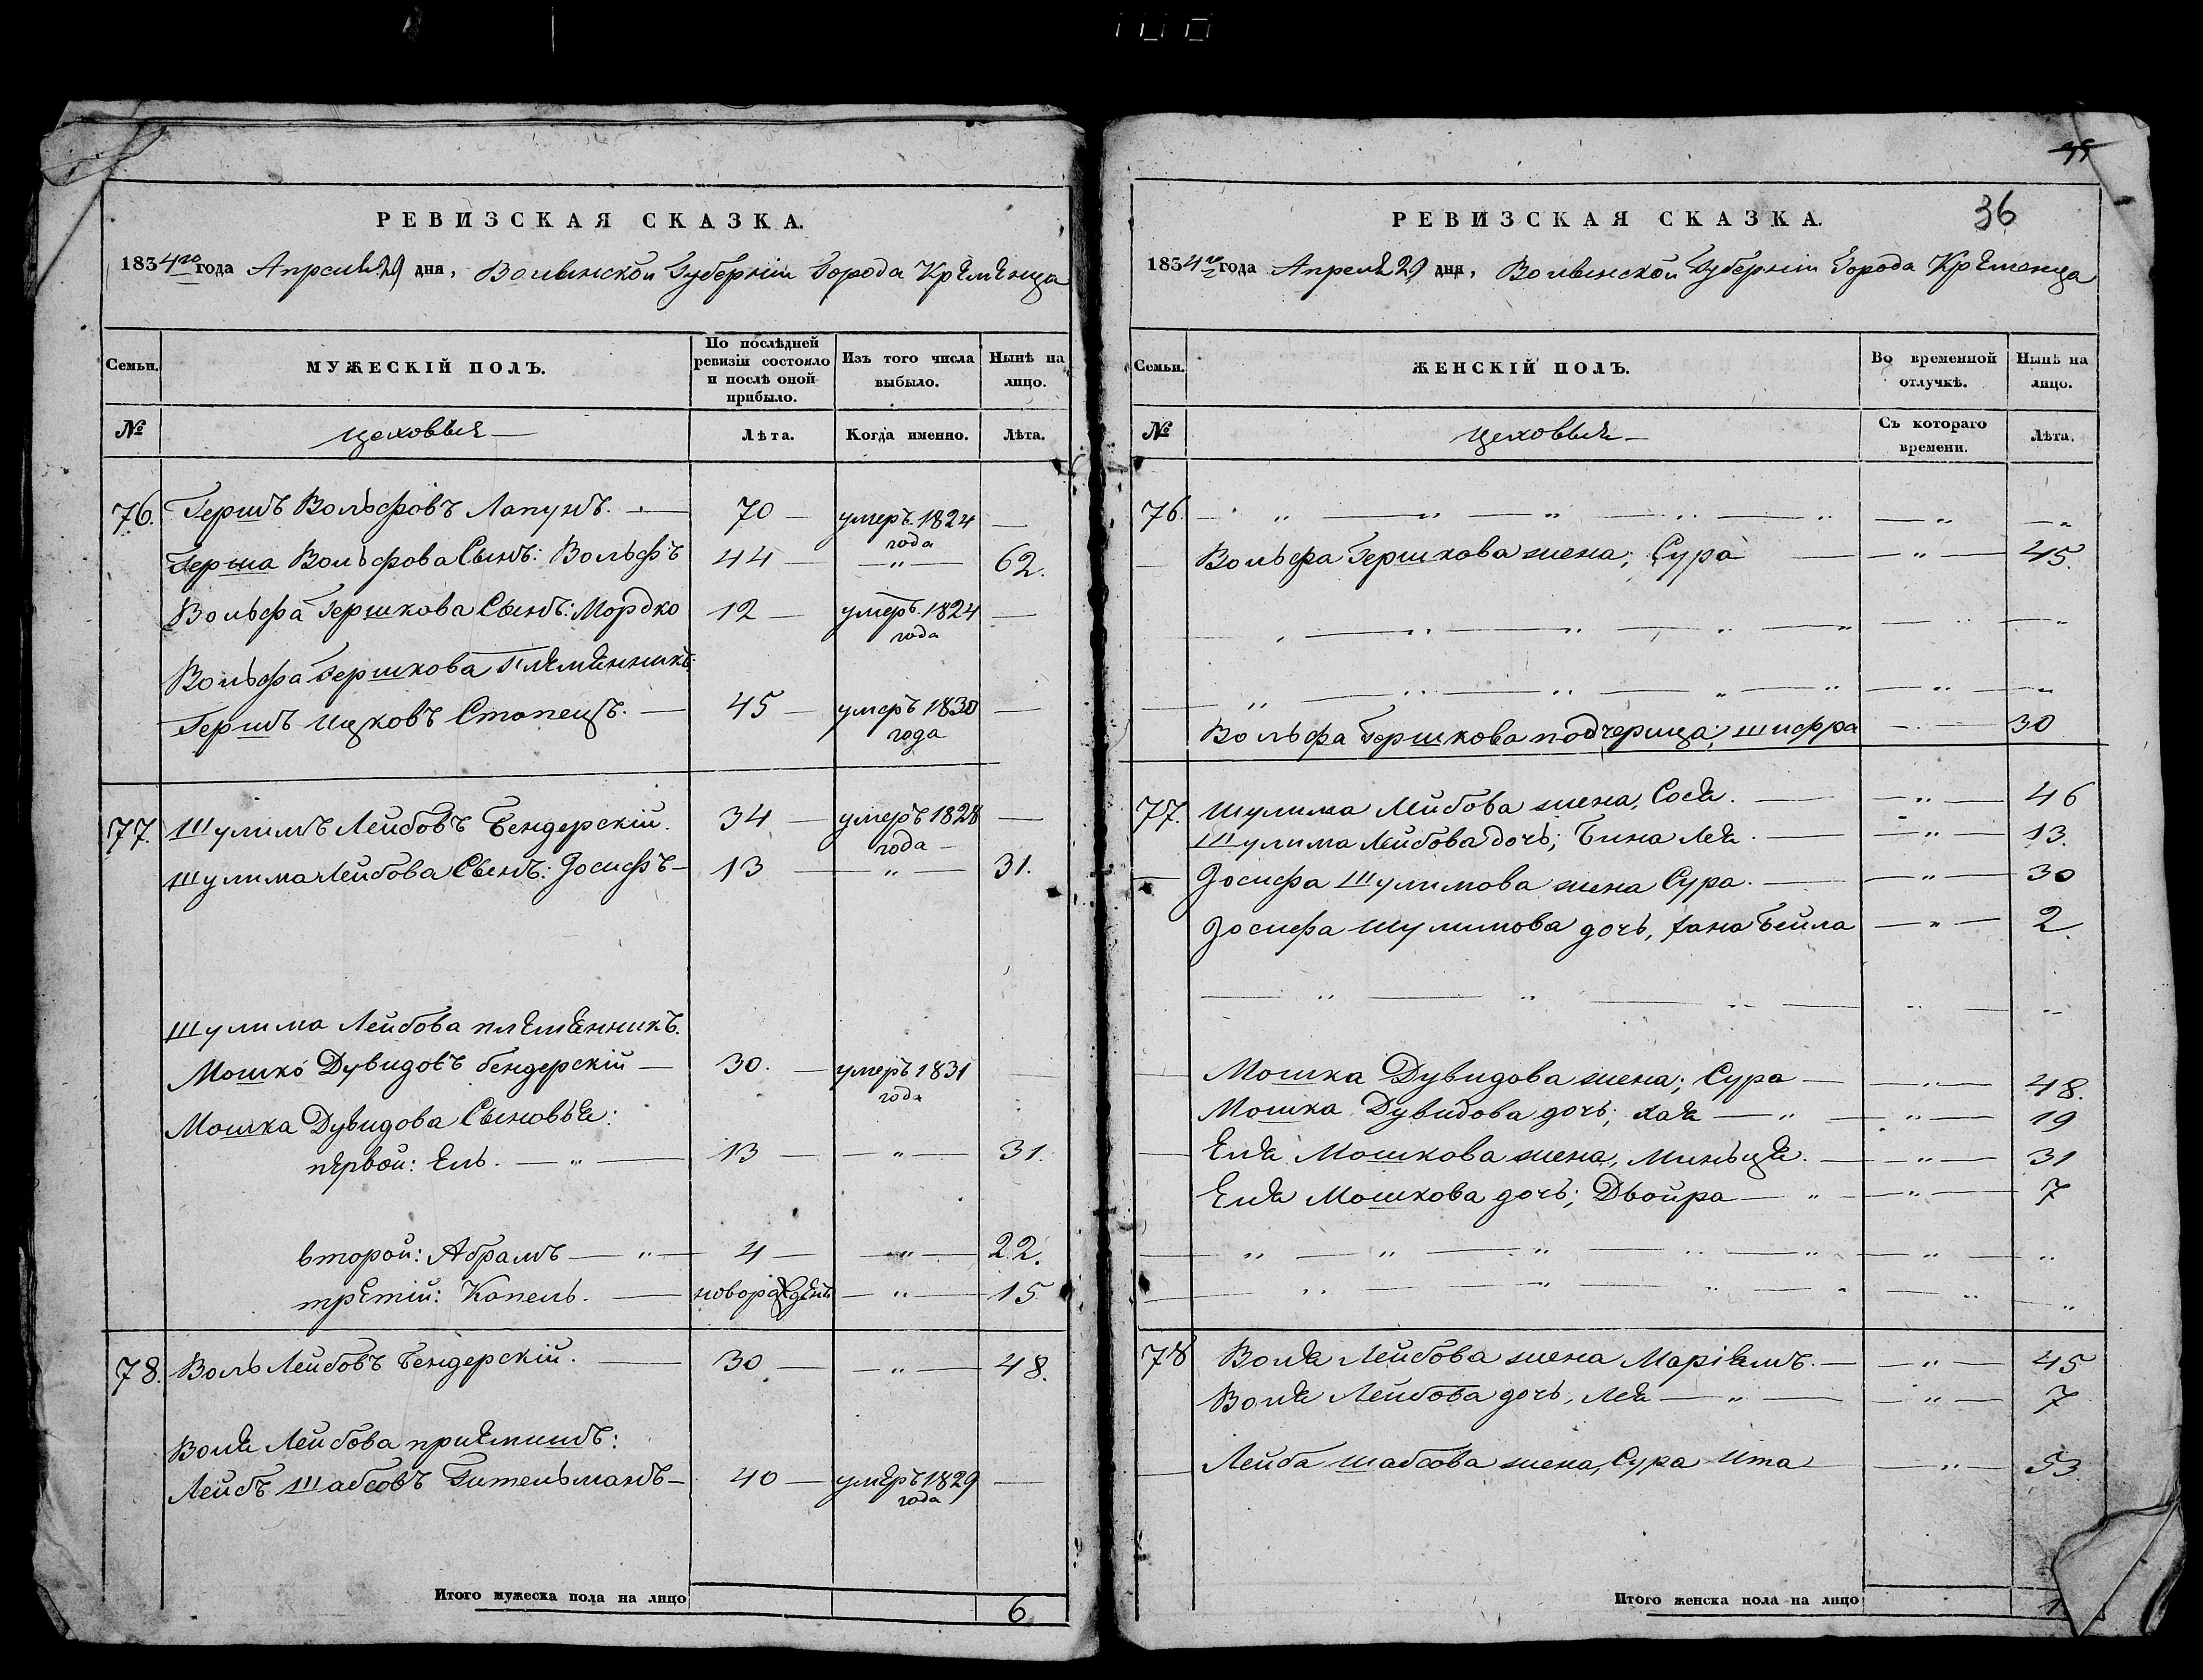 РЕВИЗСКАЯ СКАЗКА.
1834го года Апреля 29 дня, Волынской Губерніи Города Кременца
Семьи.
МУЖЕСКІЙ ПОЛЪ.
По послѣдней ревизіи состояло и послѣ оной прибыло.
Изъ того числа выбыло.
Нынѣ на лицо.
№ цеховые Лѣта. Когда именно. Лѣта.
76. Гершъ Вольфовъ Лапунъ. 70 умеръ 1824 года
Герша Вольфова Сынъ: Вольфъ 44 — „ — 62.
Вольфа Гершкова Сынъ: Мордко 12 умеръ 1824 года
Вольфа Гершкова племянникъ:
Гершъ Ицковъ Стопецъ. 45 умеръ 1830 года
77. Шулимъ Лейбовъ Бендерскій. 34 умеръ 1828 года
Шулима Лейбова Сынъ: Іосифъ 13 — „ — 31.
Шулима Лейбова племенникъ.
Мошко Дувидовъ бендерскій 30. умеръ 1831 года
Мошка Дувидова Сыновье:
первой: Ель. — „ — 13 — „ — 31.
второй: Абрамъ — „ — 4 — „ — 22.
третій: Копель. новорожденъ — „ — 15
78. Воль Лейбовъ Бендерскій. 30 — „ — 48.
Воля Лейбова приемышъ:
Лейбъ Шабсовъ Гительманъ 40 умеръ 1829 года
Итого мужеска пола на лицо 6
36
РЕВИЗСКАЯ СКАЗКА.
1834го года Апреля 29 дня, Волынской Губерніи Города Кременца
Семьи.
ЖЕНСКІЙ ПОЛЪ.
Во временной отлучкѣ.
Нынѣ на лицо.
№ цеховые Съ котораго времени. Лѣта.
76.
Вольфа Гершкова жена; Сура — „ — 45.
Вольфа Гершкова подчерица; Шифра 30
77. Шулима Лейбова жена, Сося. — „ — 46
Шулима Лейбова дочь; Бина Лея. — „ — 13.
Іосифа Шулимова жена Сура. — „ — 30
Іосифа Шулимова дочь, Хана Бейла — „ — 2.
Мошка Дувидова жена; Сура — „ — 48.
Мошка Дувидова дочь; Хая — „ — 19
Еля Мошкова жена, Миньця. — „ — 31
Еля Мошкова дочь; Двойра — „ — 7
78 Воля Лейбова жена Маріямъ. — „ — 45
Воля Лейбова дочь, Лея — „ — 7
Лейба Шабсова жена, Сура Ита — „ — 53
Итого женска пола на лицо